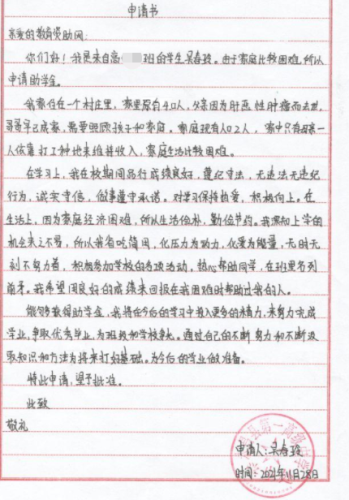 申请书
亲爱的教育资助网:
你们好!我是来自高 班的学生吴春玲。由于家庭比较困难,所以
申请助学金。
我家住在一个村庄里,家里原有4口人,父亲因为肝恶性肿瘤而去世,
哥哥早已成家,需要照顾孩子和家庭。家庭现有人口2人,家中只有母亲一
人依靠打工种地来维持收入,家庭生活比较困难。
在学习上,我在校期间品行成绩良好,遵纪守法,无违法无违纪
行为,诚实守信,做事遵守承诺。对学习保持热爱,积极向上。在
生活上,因为家庭经济困难,所以生活俭朴,勤俭节约。我深知上学的
机会来之不易,所以我省吃简用,化压力为动力,化爱为能量,无时无
刻不努力着,积极参加学校的各项活动,热心帮助同学,在班里名列
前茅。我希望用良好的成绩来回报在我困难时帮助过我的人。
能够获得助学金,我将在今后的学习中投入更多的精力,来努力完成
学业,争取优秀毕业,为班级和学校争光。通过自己的不断努力和不断汲
取知识和方法为将来打好基础。为今后的学业做准备。
特此申请,望予批准。
此致
敬礼
申请人:吴春玲
时间:2021年11月28日